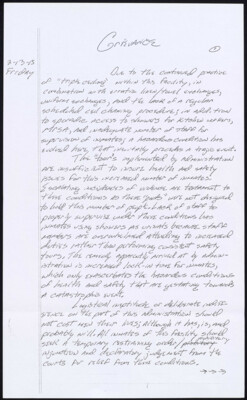 Grievance
①
2-13-13
Friday
Due to the continued practice
of "triple celling" within this facility, in
combination with erratic linen/towel exchanges,
uniform exchanges, and the lack of a regular
scheduled cell cleaning procedure; in addition
to sporadic access to showers for kitchen workers,
and, inadequate number of staff for
supervision of inmates; a hazardous condition has
evolved here, that inevitably provokes a tragic event.
The "tours" implemented by Administration
are insufficient to insure health and safety
issues for this increased number of inmates.
Escalating incidences of violence are testament to
these conditions as these "pods" were not designed
to hold this number of people. Lack of staff to
properly supervise under these conditions has
inmates using showers as because staff
members are overwhelmed attending to increased
duties rather than performing consistent safety
tours. The remedy apparently arrived at by admin-
istration is increased lock-in time for inmates,
which only exacerbates the hazardous conditions
of health and safety that are gravitating towards
a catastrophic event.
Emotional ineptitude or deliberate indiff-
erence on the part of this administration should
not cost man their lives; although it has, is, and
probably will. All inmates of this facility should
seek a temporary restraining order/preliminary
injunction and declaratory judgement from the
courts for relief from these conditions.